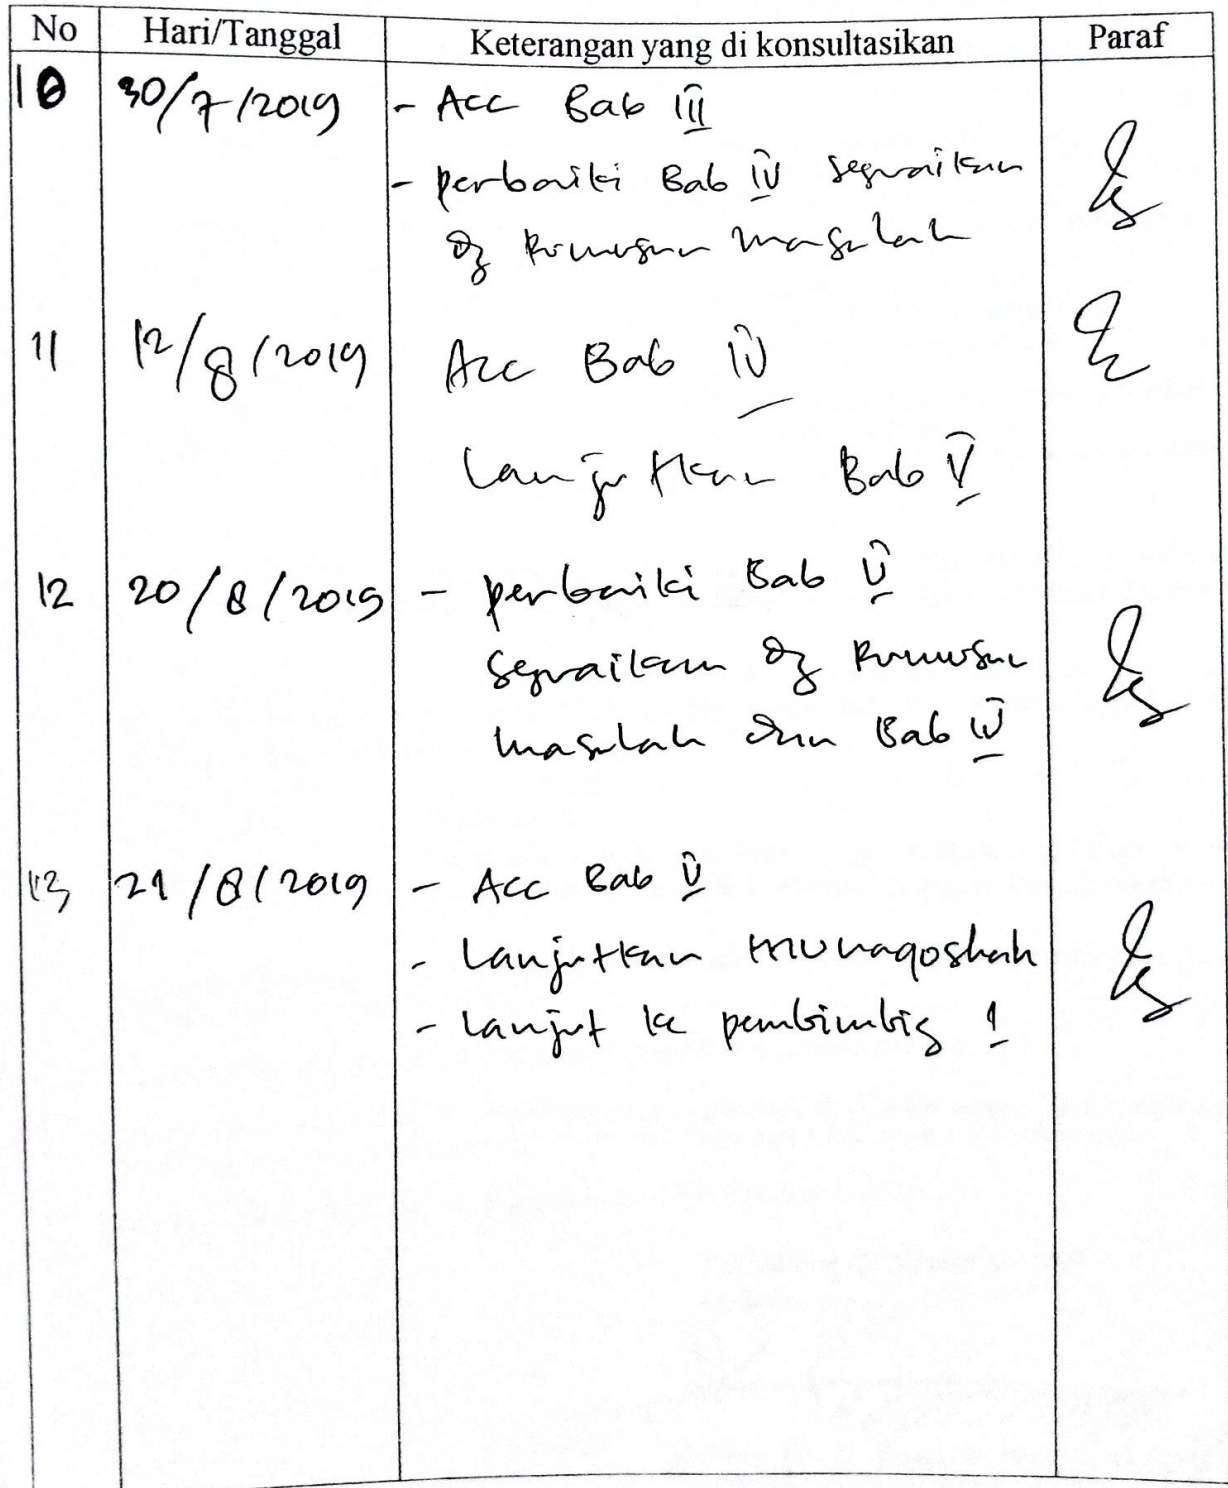 No Hari/Tanggal Keterangan yang di konsultasikan Paraf
10 30/7/2019 - Acc Bab III
- perbaiki Bab IV sesuaikan
dg Rumusan masalah
11 12/8/2019 Acc Bab IV
Lanjutkan Bab V
12 20/8/2019 - perbaiki Bab V
sesuaikan dg Rumusan
masalah dan Bab IV
13 21/8/2019 - Acc Bab V
- Lanjutkan munaqoshah
- Lanjut ke pembimbig 1